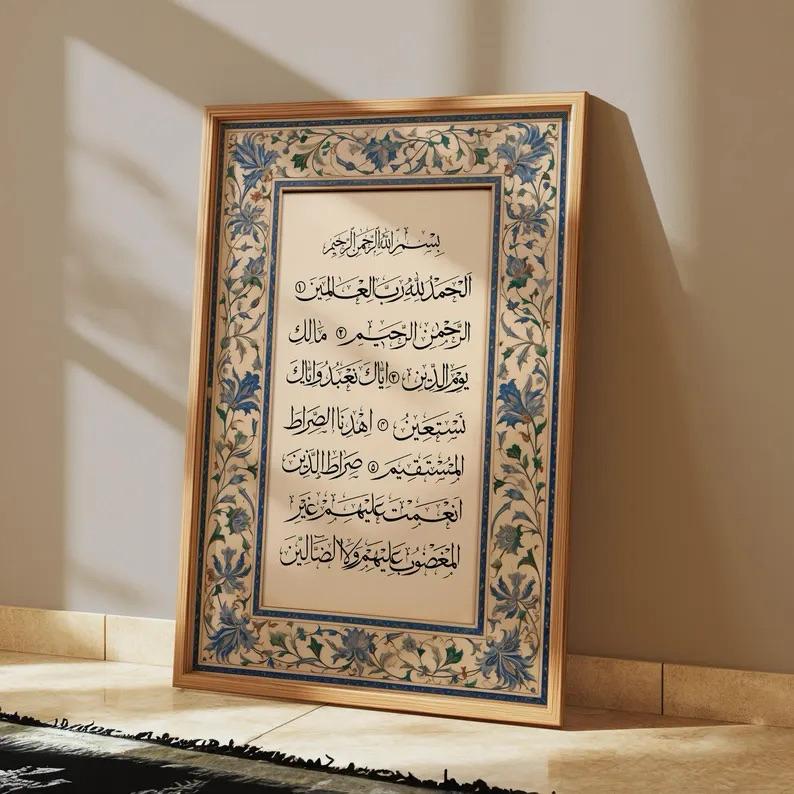 بِسْمِ اللهِ الرَّحْمٰنِ الرَّحِيْمِ
اَلْحَمْدُ لِلّٰهِ رَبِّ الْعَالَمِيْنَ ١
الرَّحْمٰنِ الرَّحِيْمِ ٢ مَالِكِ
يَوْمِ الدِّيْنِ ٣ اِيَّاكَ نَعْبُدُ وَاِيَّاكَ
نَسْتَعِيْنُ ٤ اِهْدِنَا الصِّرَاطَ
الْمُسْتَقِيْمَ ٥ صِرَاطَ الَّذِيْنَ
اَنْعَمْتَ عَلَيْهِمْ غَيْرِ
الْمَغْضُوْبِ عَلَيْهِمْ وَلَا الضَّالِّيْنَ